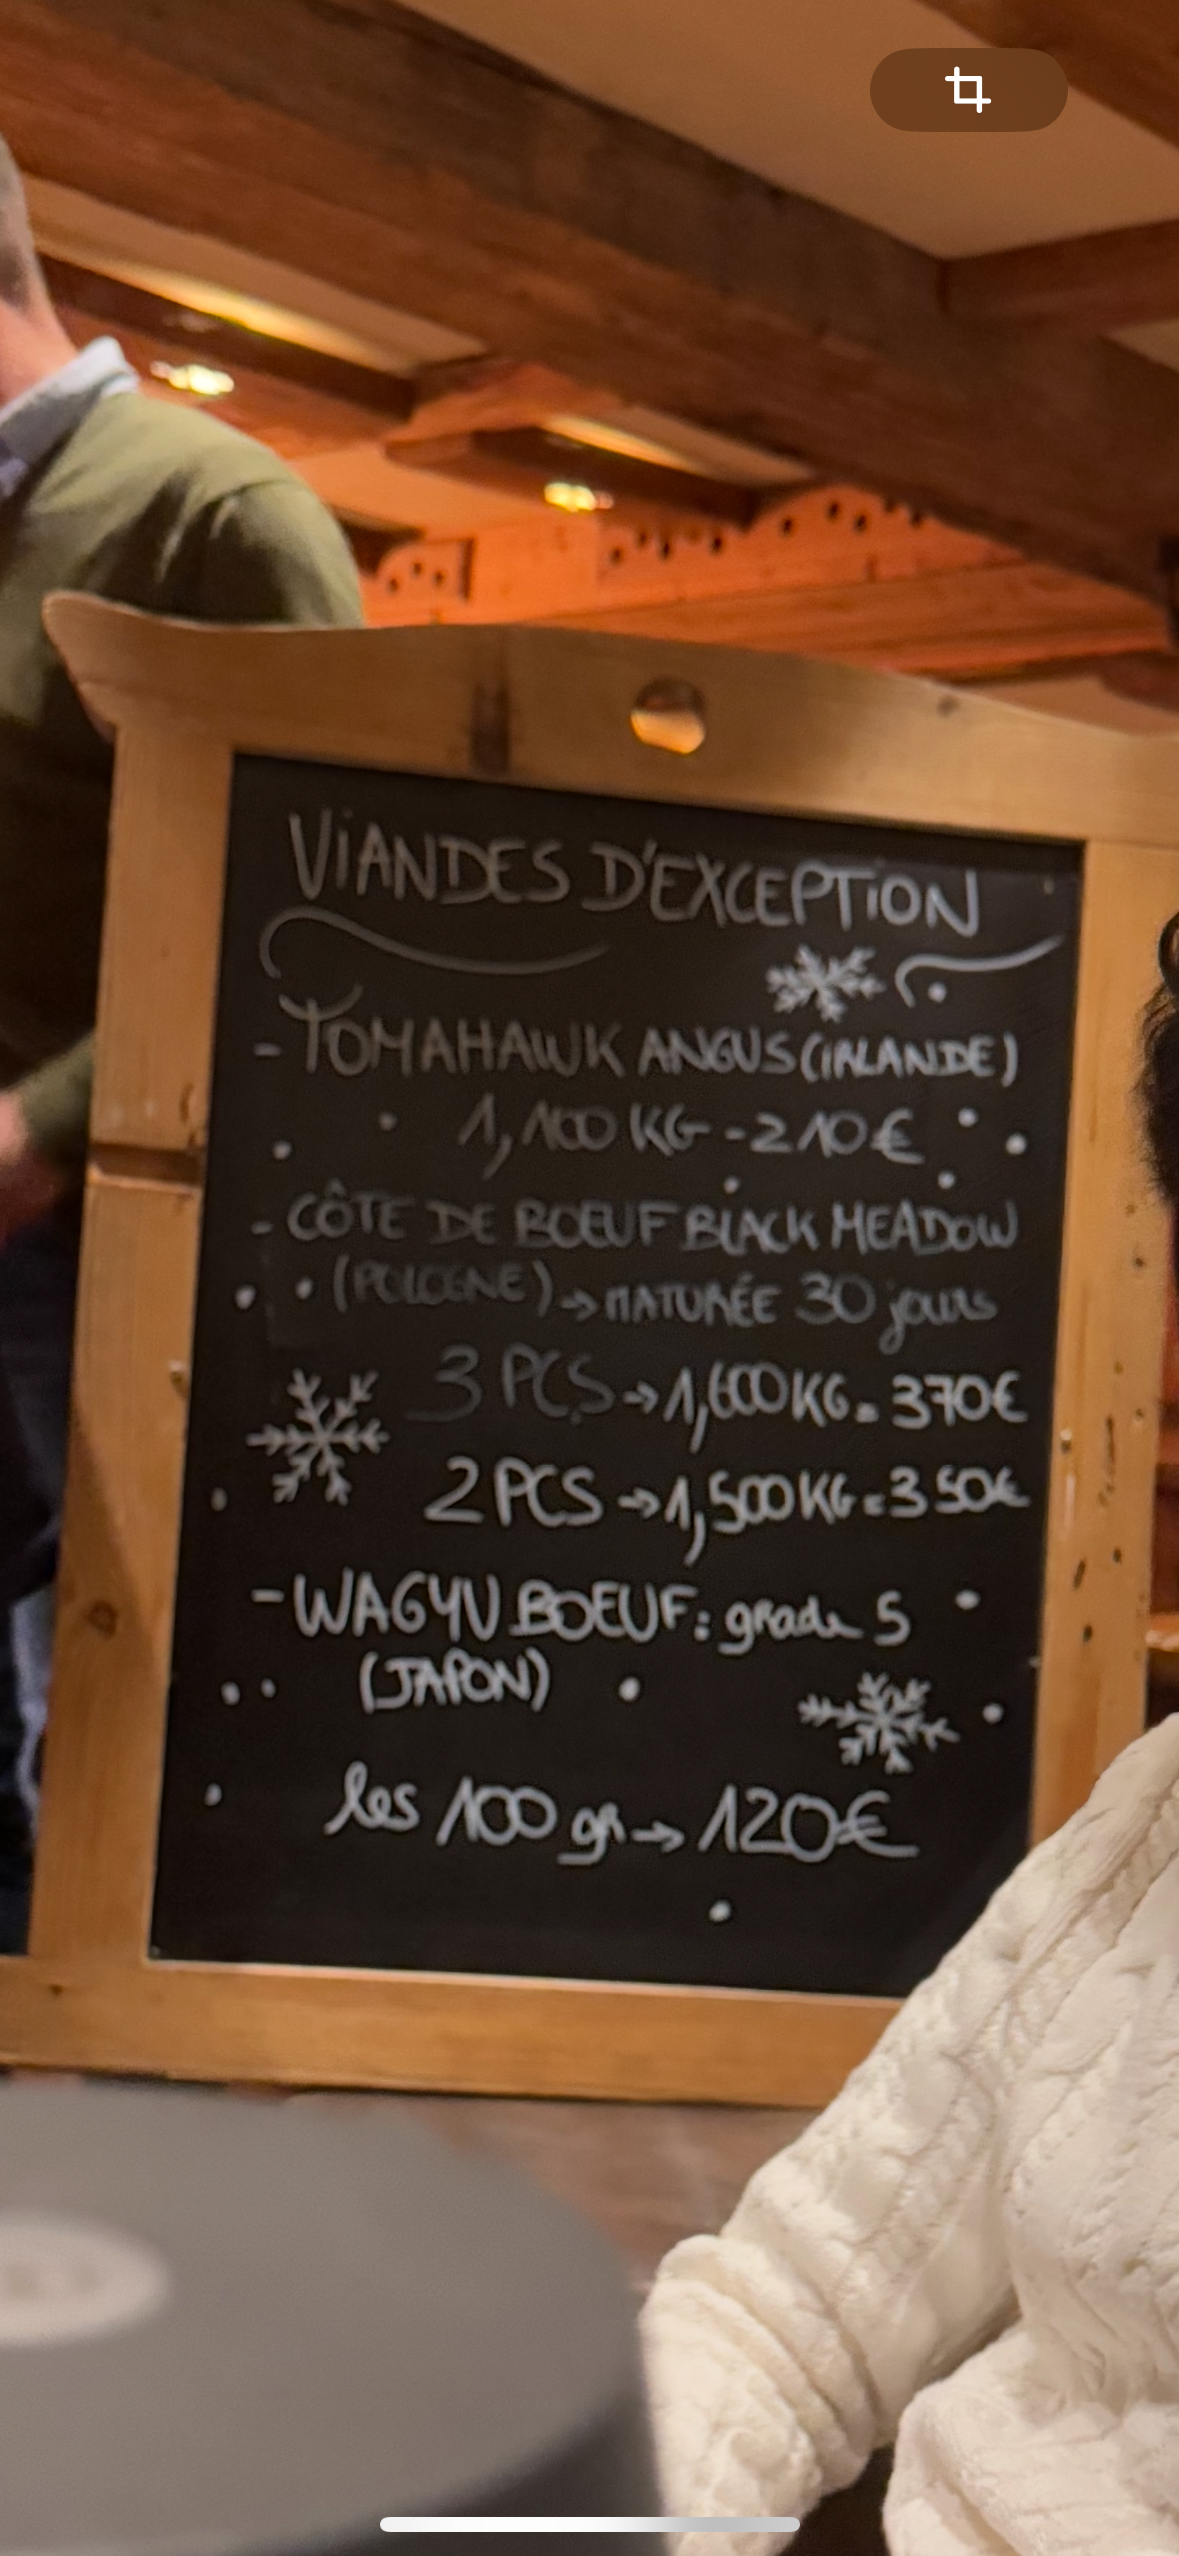 VIANDES D'EXCEPTION
- TOMAHAWK ANGUS (IRLANDE)
1,100 KG - 210€
- CÔTE DE BOEUF BLACK MEADOW
(POLOGNE) → MATURÉE 30 jours
3 PCS → 1,600 KG = 370€
2 PCS → 1,500 KG = 350€
- WAGYU BOEUF : grade 5
(JAPON)
les 100 gr → 120€